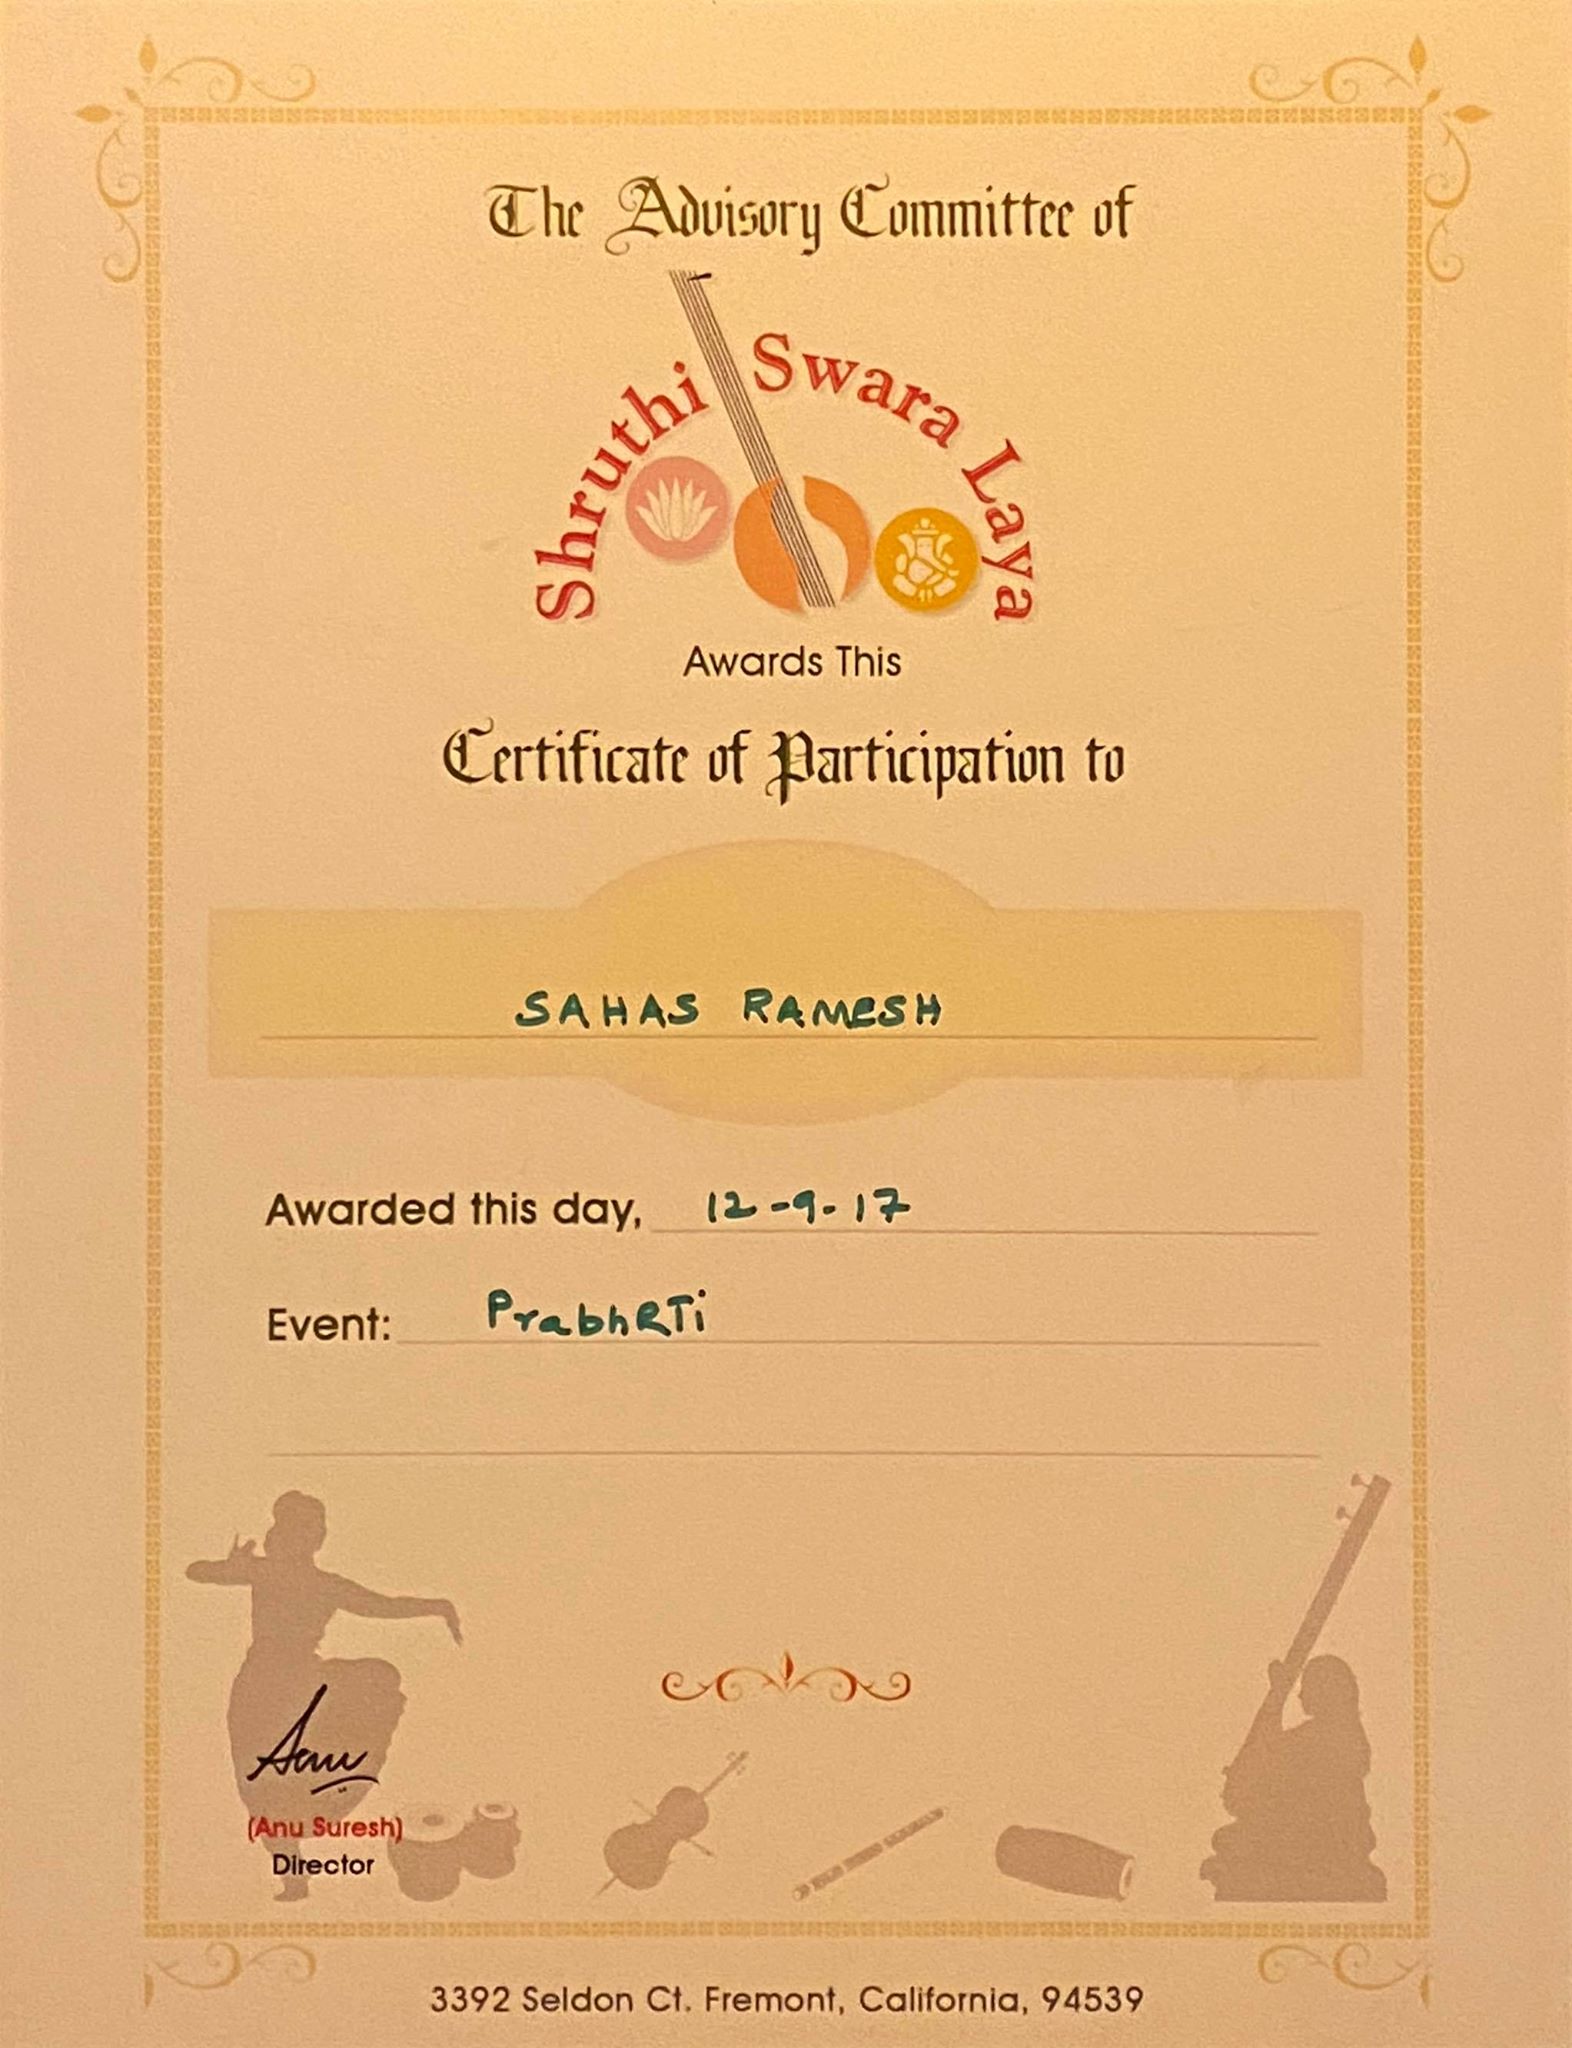 The Advisory Committee of
Shruthi Swara Laya
Awards This
Certificate of Participation to
SAHAS RAMESH
Awarded this day, 12-9-17
Event: PrabhRTi
Anu
(Anu Suresh)
Director
3392 Seldon Ct. Fremont, California, 94539